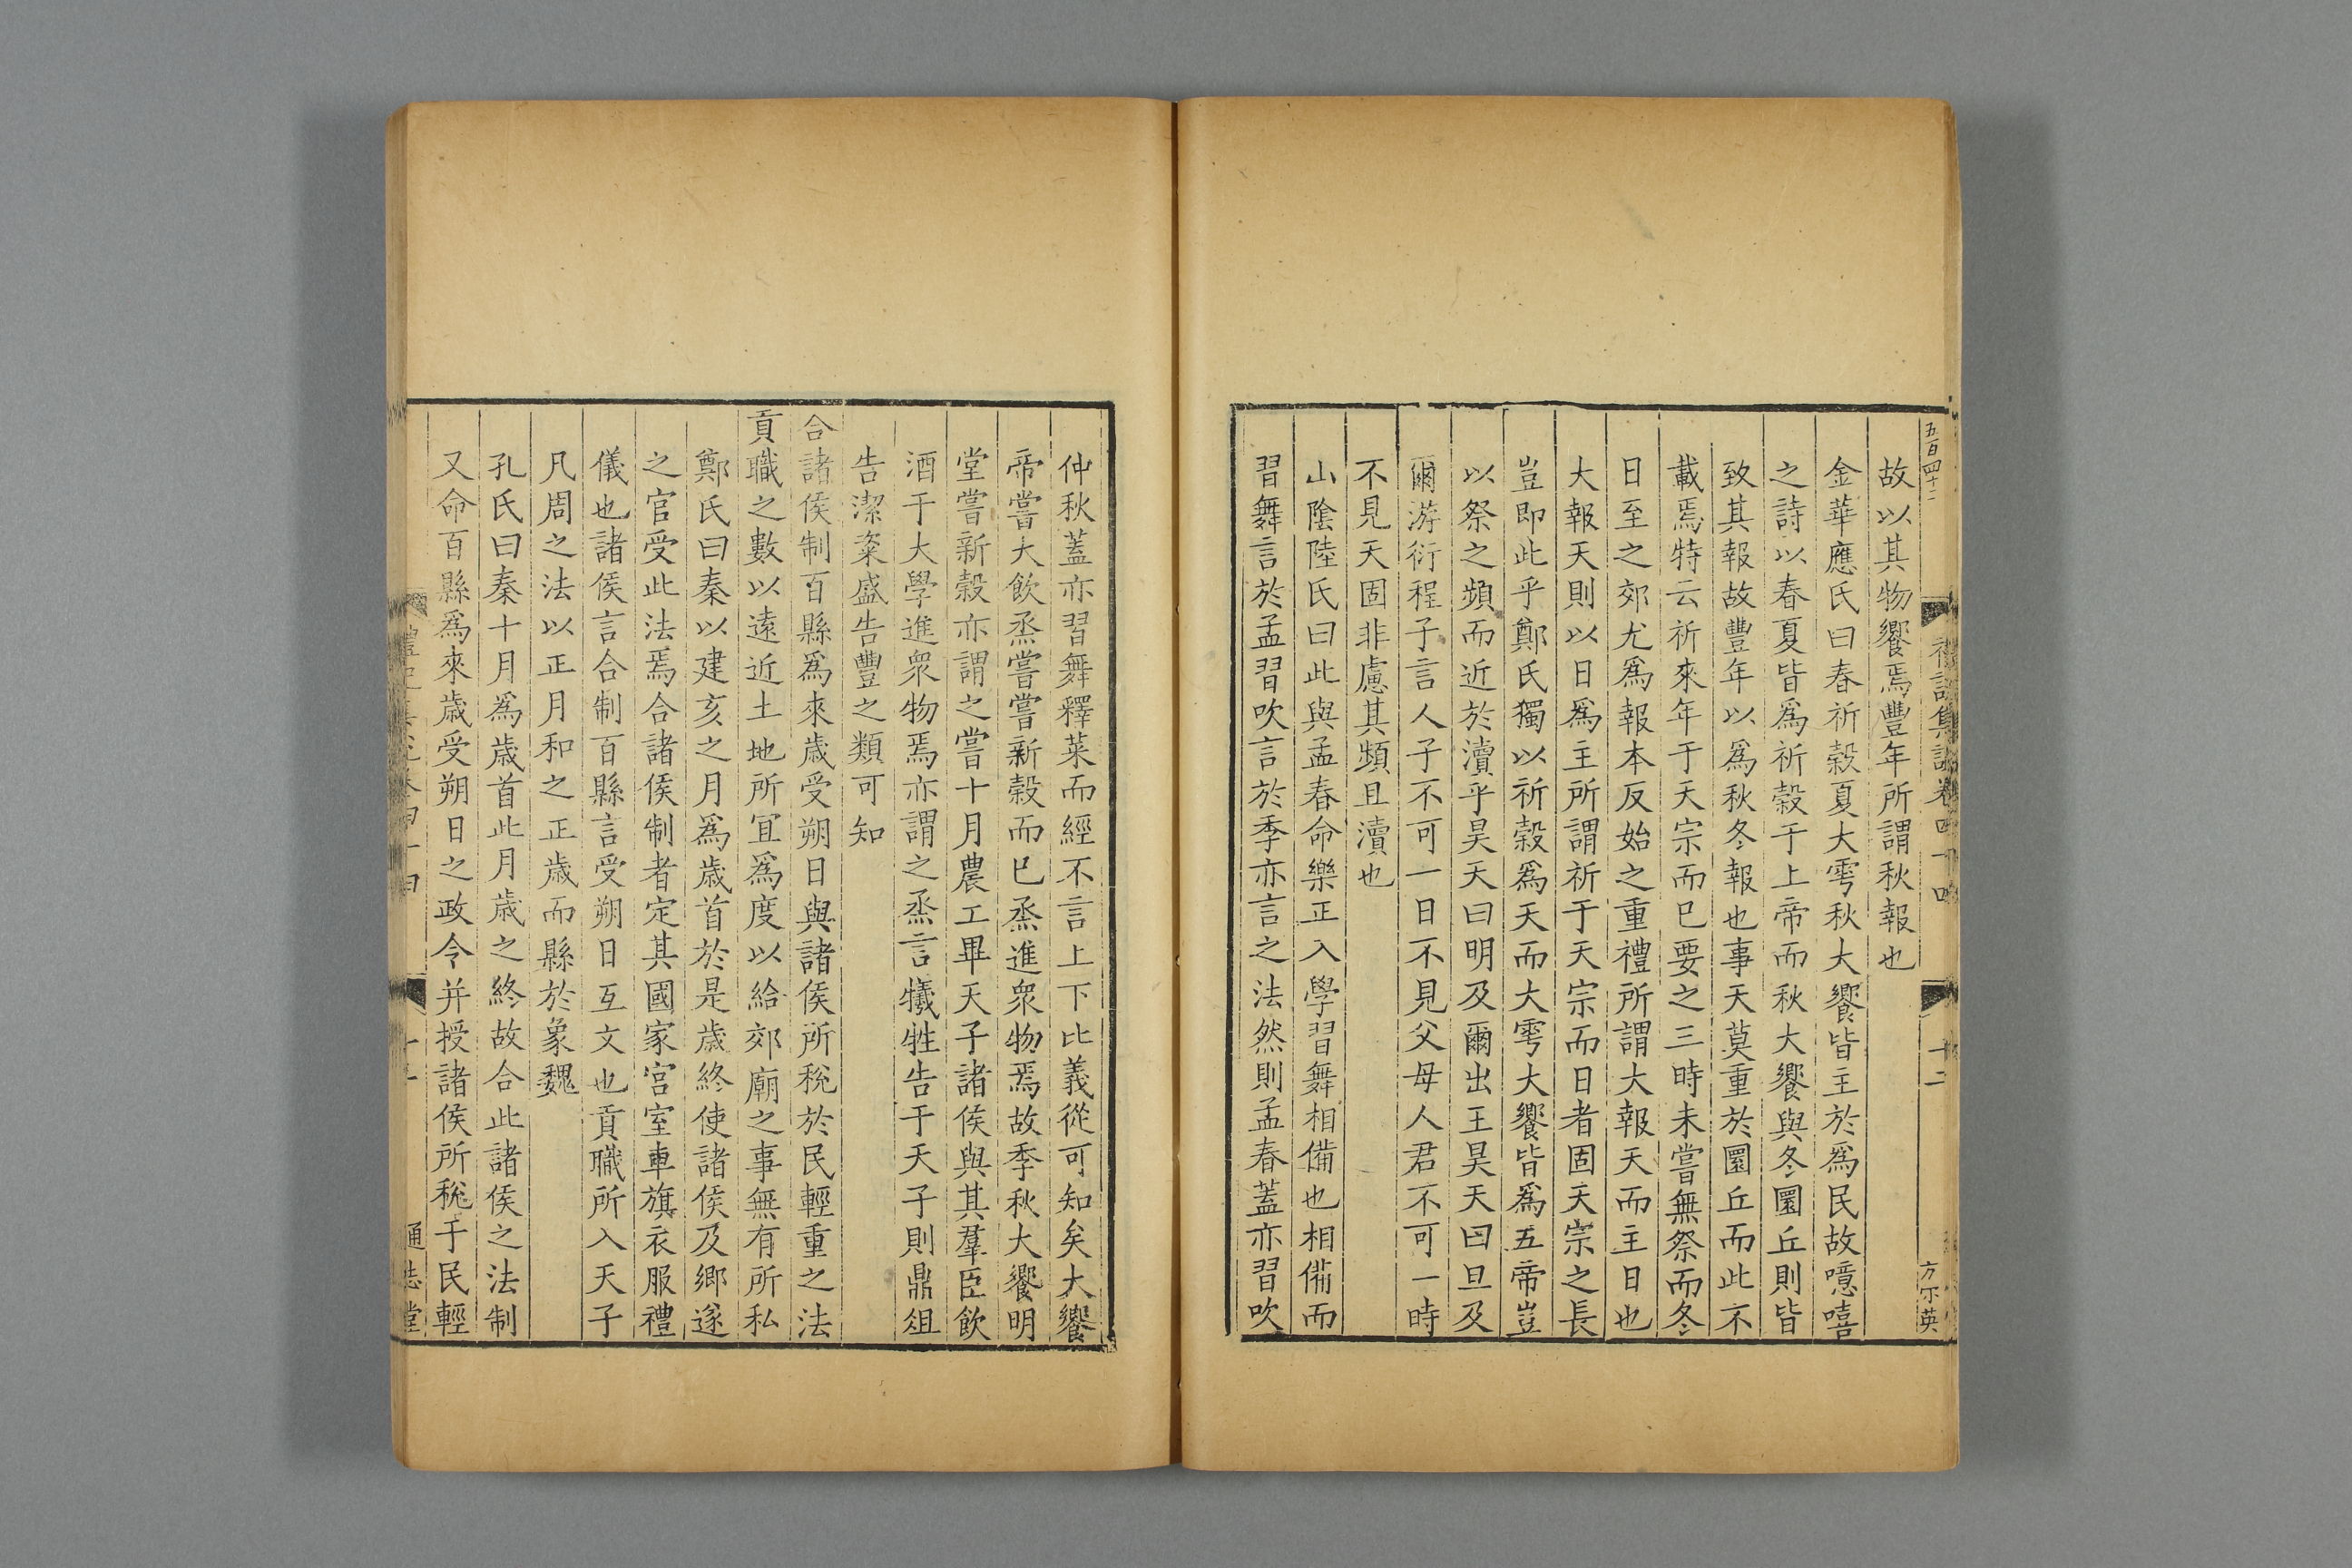 五百四十二
禮記集說卷四十四
十二
方不英
故以其物饗焉豐年所謂秋報也
金華應氏曰春祈穀夏大雩秋大饗皆主於爲民故噫嘻
之詩以春夏皆爲祈穀于上帝而秋大饗與冬圜丘則皆
致其報故豐年以爲秋冬報也事天莫重於圜丘而此不
載焉特云祈來年于天宗而已要之三時未嘗無祭而冬
日至之郊尤爲報本反始之重禮所謂大報天而主日也
大報天則以日爲主所謂祈于天宗而日者固天宗之長
豈即此乎鄭氏獨以祈穀爲天而大雩大饗皆爲五帝豈
以祭之頻而近於瀆乎昊天曰明及爾出王昊天曰旦及
爾游衍程子言人子不可一日不見父母人君不可一時
不見天固非慮其頻且瀆也
山陰陸氏曰此與孟春命樂正入學習舞相備也相備而
習舞言於孟習吹言於季亦言之法然則孟春蓋亦習吹
仲秋蓋亦習舞釋菜而經不言上下比義從可知矣大饗
帝嘗嘗大飲烝嘗嘗新穀而已烝進衆物焉故季秋大饗明
堂嘗新穀亦謂之嘗十月農工畢天子諸侯與其羣臣飲
酒于大學進衆物焉亦謂之烝言犧牲告于天子則鼎俎
告潔粢盛告豐之類可知
合諸侯制百縣爲來歲受朔日與諸侯所稅於民輕重之法
貢職之數以遠近土地所宜爲度以給郊廟之事無有所私
鄭氏曰秦以建亥之月爲歲首於是歲終使諸侯及鄉遂
之官受此法焉合諸侯制者定其國家宮室車旗衣服禮
儀也諸侯言合制百縣言受朔日互文也貢職所入天子
凡周之法以正月和之正歲而縣於象魏
孔氏曰秦十月爲歲首此月歲之終故合此諸侯之法制
又命百縣爲來歲受朔日之政令并授諸侯所稅于民輕
禮記集說卷四十四
十二
通志堂